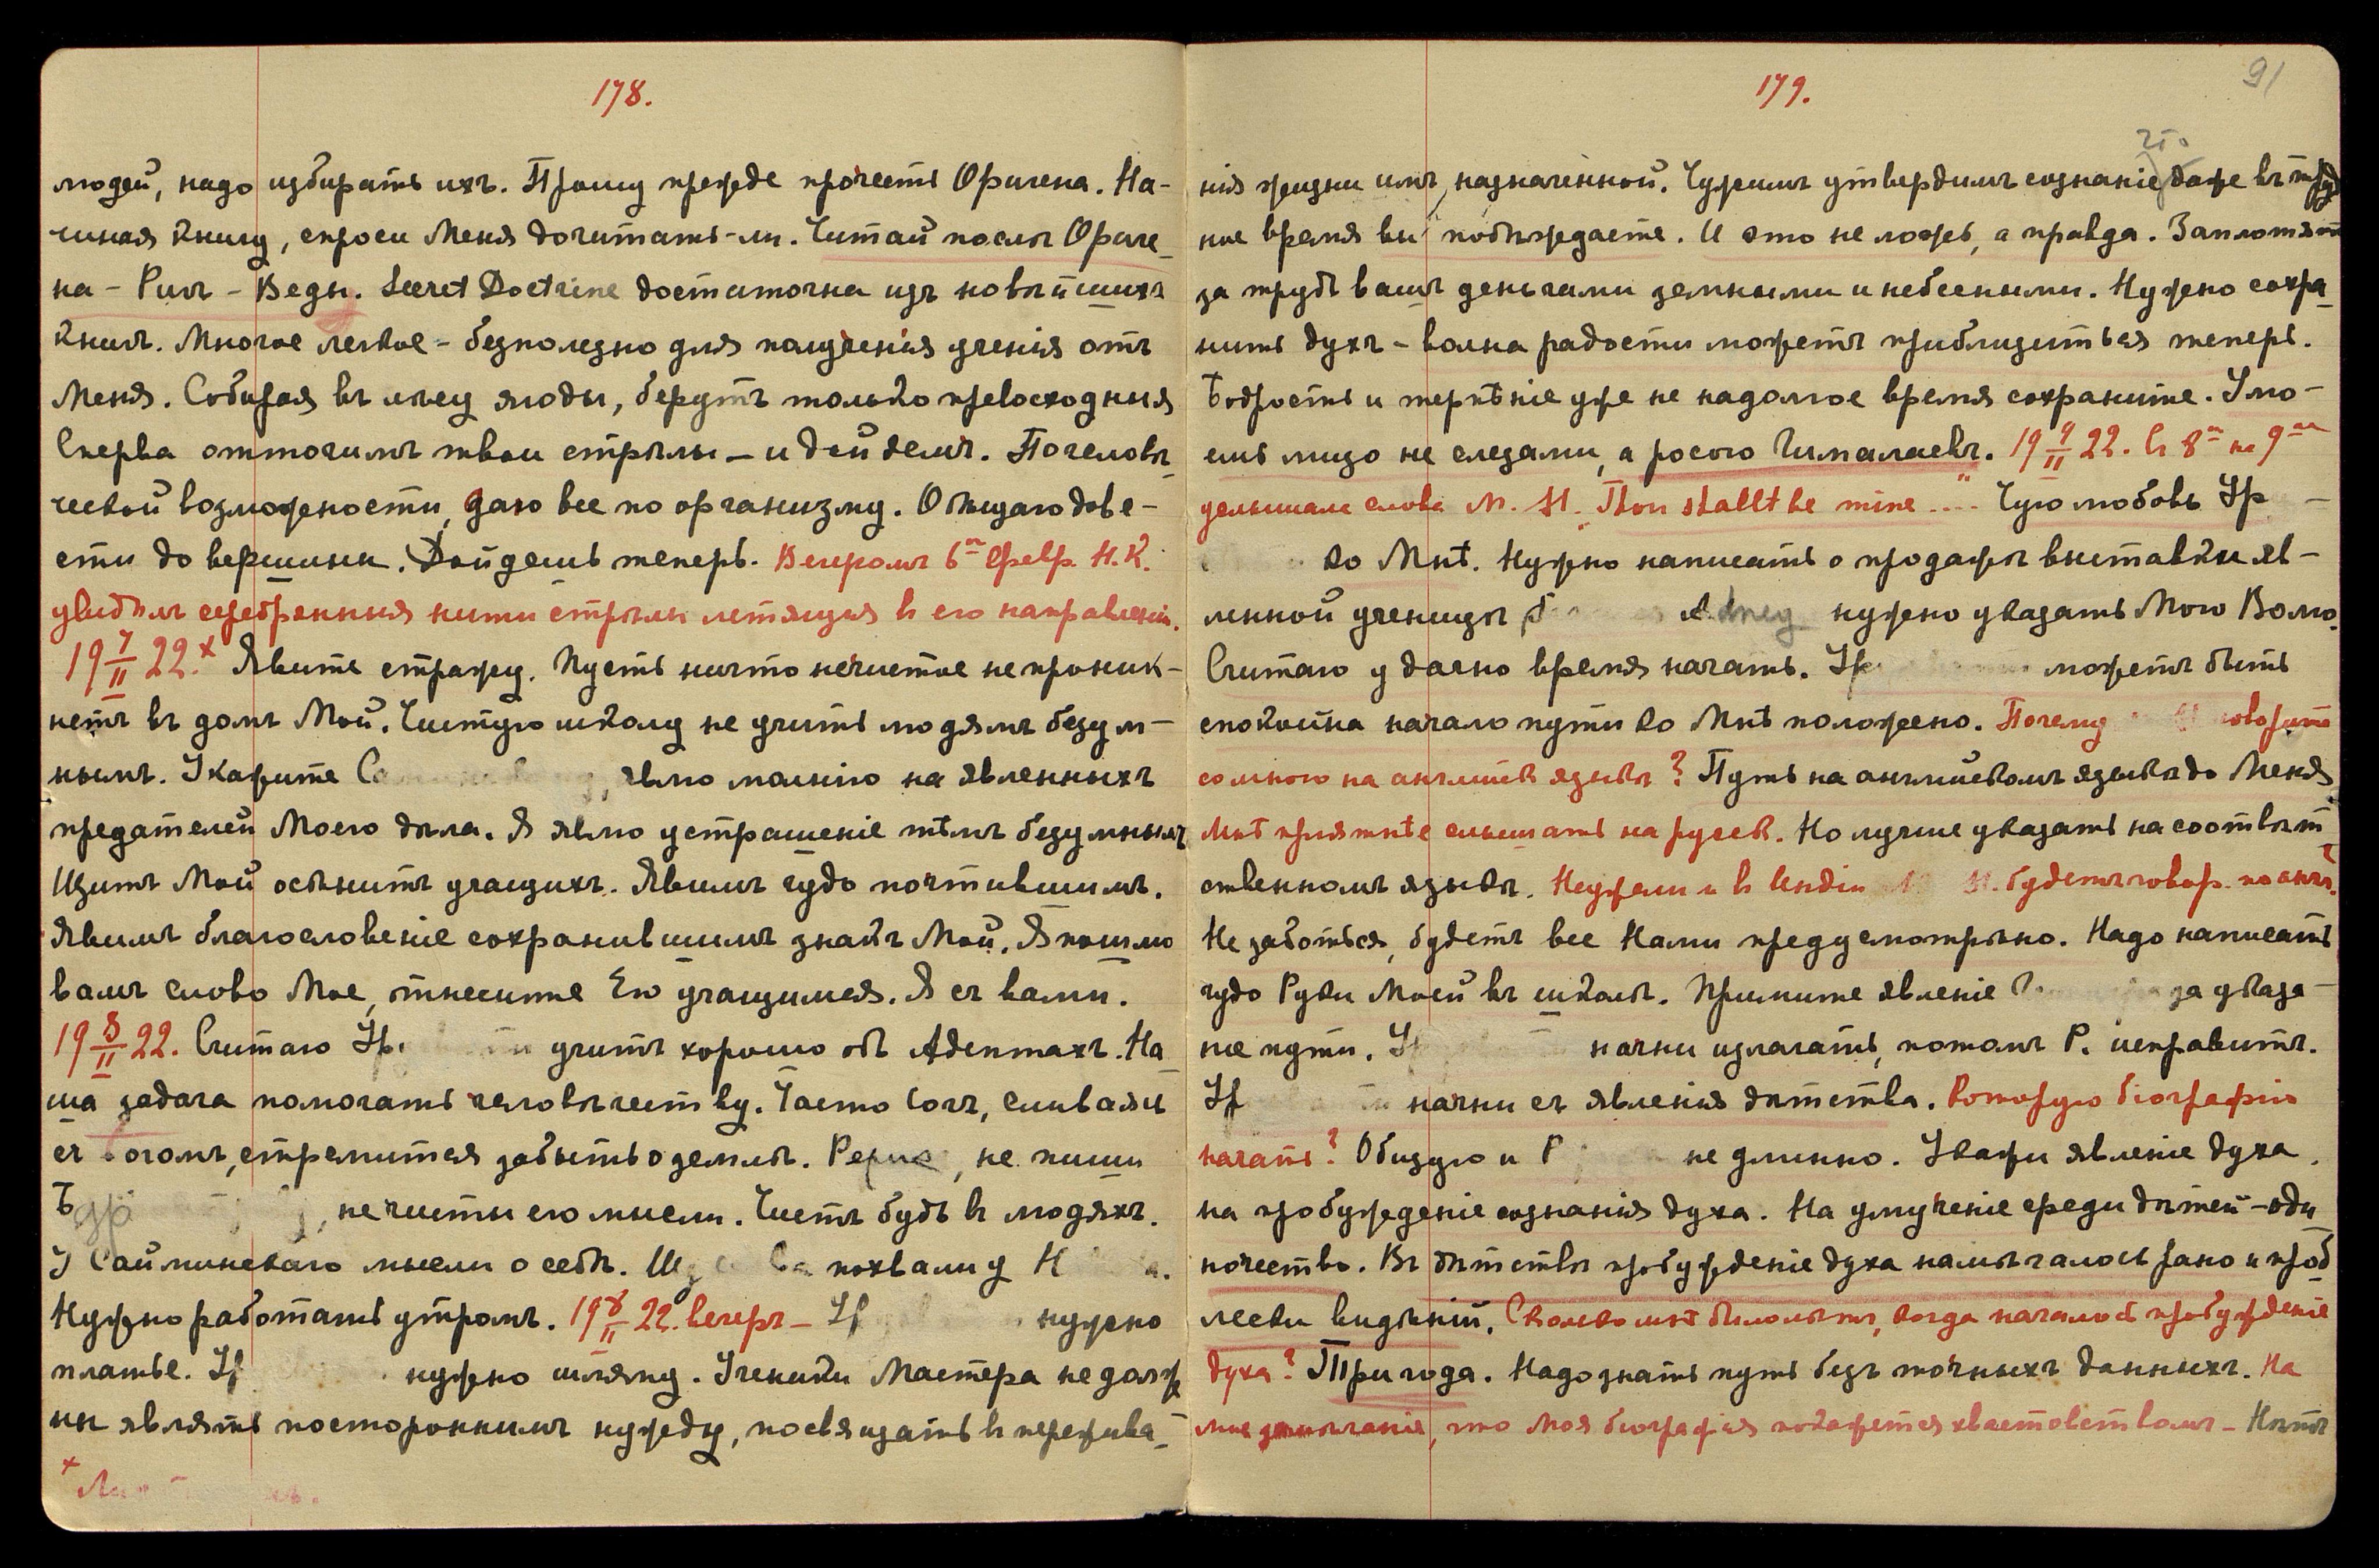 178.
людей, надо избирать ихъ. Прошу прежде прочесть Оригена. На-
чиная книгу, спроси Меня дочитать-ли. Читай послѣ Ориге-
на - Ригъ - Веды. Secret Doctrine достаточна изъ новѣйшихъ
книгъ. Многое легкое - безполезно для полученія ученія отъ
Меня. Собирая въ лѣсу ягоды, берутъ только превосходныя
Сперва отточимъ твои стрѣлы - и дойдемъ. По человѣ
ческой возможности, даю все по организму. Обѣщаю дове-
сти до вершины. Дойдешь теперь. Вечеромъ 6го февр. Н.К.
увидѣлъ серебренныя нити стрѣлы летящія въ его направленіи.
19 7/II 22.x Явите стражу. Пусть ничто нечистое не проник-
нетъ въ домъ Мой. Чистую школу не учить людямъ безум-
нымъ. Укажите явлю молнію на явленныхъ
предателей Моего дѣла. Я явлю устрашеніе тѣмъ безумнымъ
Щитъ Мой осѣнитъ учащихъ. Явимъ чудо почтившимъ.
Явимъ благословеніе сохранившимъ знакъ Мой. Я пошлю
вамъ слово Мое, отнесите Его учащимся. Я съ вами.
19 8/II 22. Считаю Ур учитъ хорошо объ Адептахъ. На
ша задача помогать человѣчеству. Часто Іогъ, сливаясь
съ Богомъ, стремится забыть о землѣ. Рерихъ, не пиши
не чисты его мысли. Чистъ будь въ людяхъ.
У Сайминскаго мысли о себѣ. похвали у Н
Нужно работать утромъ. 19 8/II 22. вечеръ - Ур нужно
платье. Ур нужно шляпу. Ученики Мастера не долж
ны являть постороннимъ нужду, посвящать въ пережива-
x
179.
91
что
нія жизни имъ назначенной. Чужимъ утвердимъ сознаніе даже въ труд
ное время вы побѣждаете. И это не ложь, а правда. Заплотятъ
за трудъ вашъ деньгами земными и небесными. Нужно сохра
нить духъ - волна радости можетъ приблизиться теперь.
Бодрость и терпѣніе уже не надолгое время сохраните. Умо-
ешь лицо не слезами, а росою Гималаевъ. 19 9/II 22. Съ 8го на 9ое
услышала слова М. М. "Thou shallt be mine ...." Чую любовь Ур -
ко Мнѣ. Нужно написать о продажѣ выставки яв-
ленной ученицы нужно указать Мою Волю.
Считаю удачно время начать. Ур можетъ быть
спокойна начало пути ко Мнѣ положено. Почему говоритъ
со мною на англійск языкѣ? Путь на англійскомъ языкѣ до Меня
Мнѣ пріятнѣе слышать на русск. Но лучше указать на соотвѣт
ственномъ языкѣ. Неужели и въ Индіи М. М. будетъ говор. по англ.
Не заботься, будетъ все Нами предусмотрѣно. Надо написать
чудо Руки Моей въ школѣ. Примите явленіе за указа-
ніе пути. Ур начни излагать, потомъ Р. исправитъ.
Ур начни съ явленія дѣтства. Которую біографію
начать? Общую и Р не длинно. Укажи явленіе духа
на пробужденіе сознанія духа. На улученіе среди дѣтей - оди
ночество. Въ дѣтствѣ пробужденіе духа намѣчалось рано и проб
лески видѣній. Сколько мнѣ было лѣтъ, когда началось пробужденіе
духа? Три года. Надо знать путь безъ точныхъ данныхъ. На
мое замѣчаніе, что моя біографія покажется хвастовствомъ - Нѣтъ